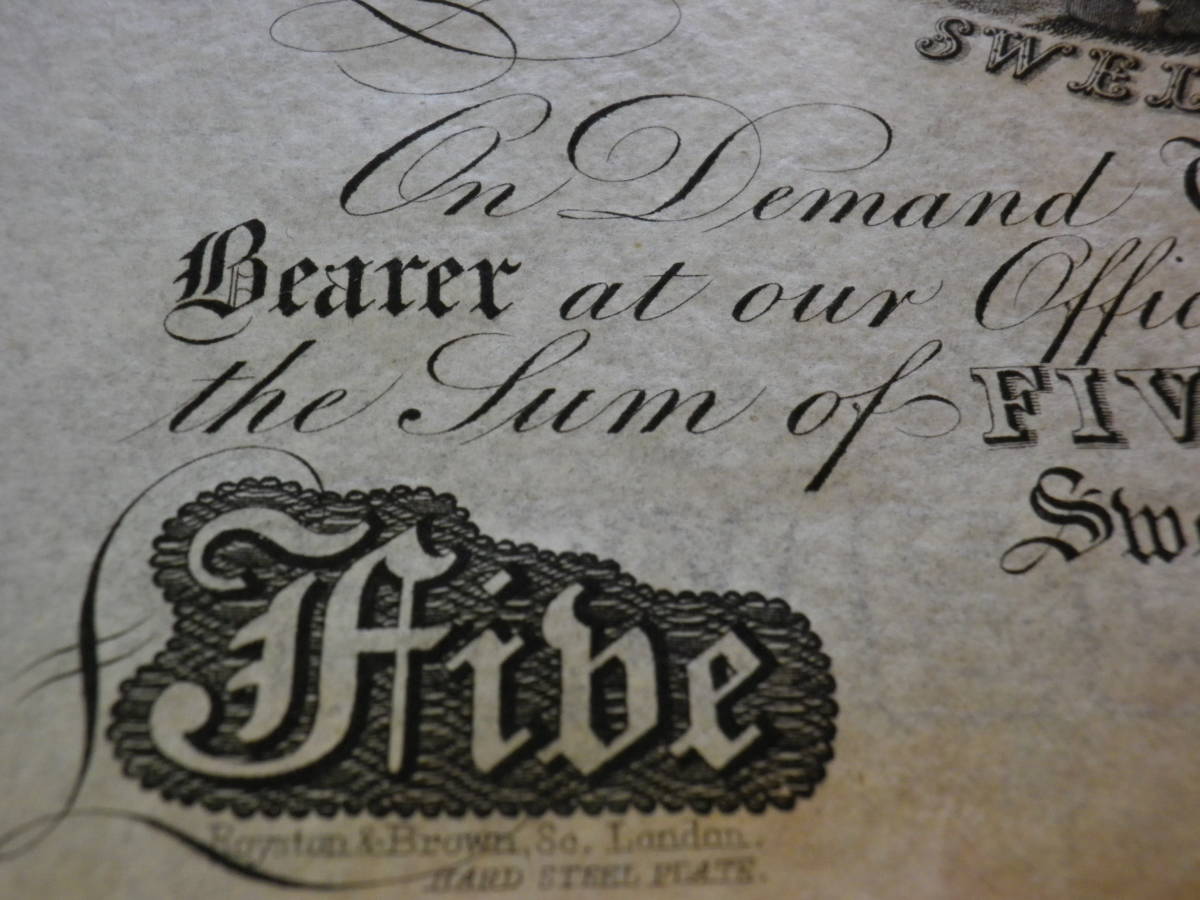 SWEL
On Demand
Bearer at our Offic
the Sum of FIV
Swe
Five
Royston & Brown, Sc. London.
HARD STEEL PLATE.